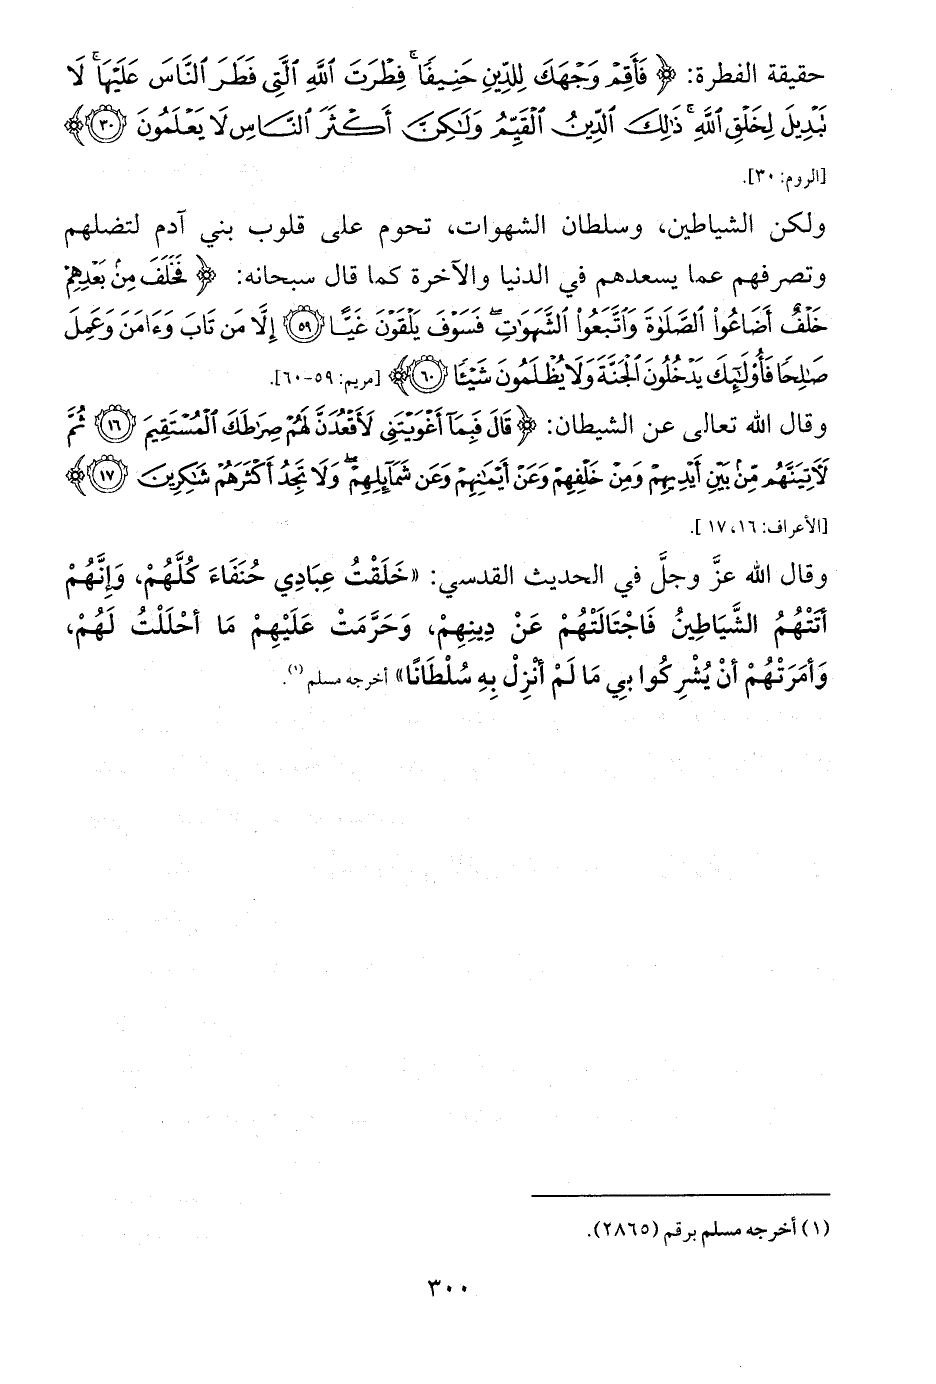 حقيقة الفطرة: ﴿ فَأَقِمْ وَجْهَكَ لِلدِّينِ حَنِيفًا ۚ فِطْرَتَ ٱللَّهِ ٱلَّتِى فَطَرَ ٱلنَّاسَ عَلَيْهَا ۚ لَا
تَبْدِيلَ لِخَلْقِ ٱللَّهِ ۚ ذَٰلِكَ ٱلدِّينُ ٱلْقَيِّمُ وَلَٰكِنَّ أَكْثَرَ ٱلنَّاسِ لَا يَعْلَمُونَ ٣٠ ﴾
[الروم: ٣٠].
ولكن الشياطين، وسلطان الشهوات، تحوم على قلوب بني آدم لتضلهم
وتصرفهم عما يسعدهم في الدنيا والآخرة كما قال سبحانه: ﴿ فَخَلَفَ مِنۢ بَعْدِهِمْ
خَلْفٌ أَضَاعُوا۟ ٱلصَّلَوٰةَ وَٱتَّبَعُوا۟ ٱلشَّهَوَٰتِ ۖ فَسَوْفَ يَلْقَوْنَ غَيًّا ٥٩ إِلَّا مَن تَابَ وَءَامَنَ وَعَمِلَ
صَٰلِحًا فَأُو۟لَٰٓئِكَ يَدْخُلُونَ ٱلْجَنَّةَ وَلَا يُظْلَمُونَ شَيْـًٔا ٦٠ ﴾ [مريم: ٥٩-٦٠].
وقال الله تعالى عن الشيطان: ﴿ قَالَ فَبِمَآ أَغْوَيْتَنِى لَأَقْعُدَنَّ لَهُمْ صِرَٰطَكَ ٱلْمُسْتَقِيمَ ١٦ ثُمَّ
لَءَاتِيَنَّهُم مِّنۢ بَيْنِ أَيْدِيهِمْ وَمِنْ خَلْفِهِمْ وَعَنْ أَيْمَٰنِهِمْ وَعَن شَمَآئِلِهِمْ ۖ وَلَا تَجِدُ أَكْثَرَهُمْ شَٰكِرِينَ ١٧ ﴾
[الأعراف: ١٦، ١٧].
وقال الله عزَّ وجلَّ في الحديث القدسي: «خَلَقْتُ عِبَادِي حُنَفَاءَ كُلَّهُمْ، وَإِنَّهُمْ
أتَتْهُمُ الشَّيَاطِينُ فَاجْتَالَتْهُمْ عَنْ دِينِهِمْ، وَحَرَّمَتْ عَلَيْهِمْ مَا أحْلَلْتُ لَهُمْ،
وَأمَرَتْهُمْ أنْ يُشْرِكُوا بِي مَا لَمْ أُنْزِلْ بِهِ سُلْطَانًا» أخرجه مسلم (١).
(١) أخرجه مسلم برقم (٢٨٦٥).
٣٠٠